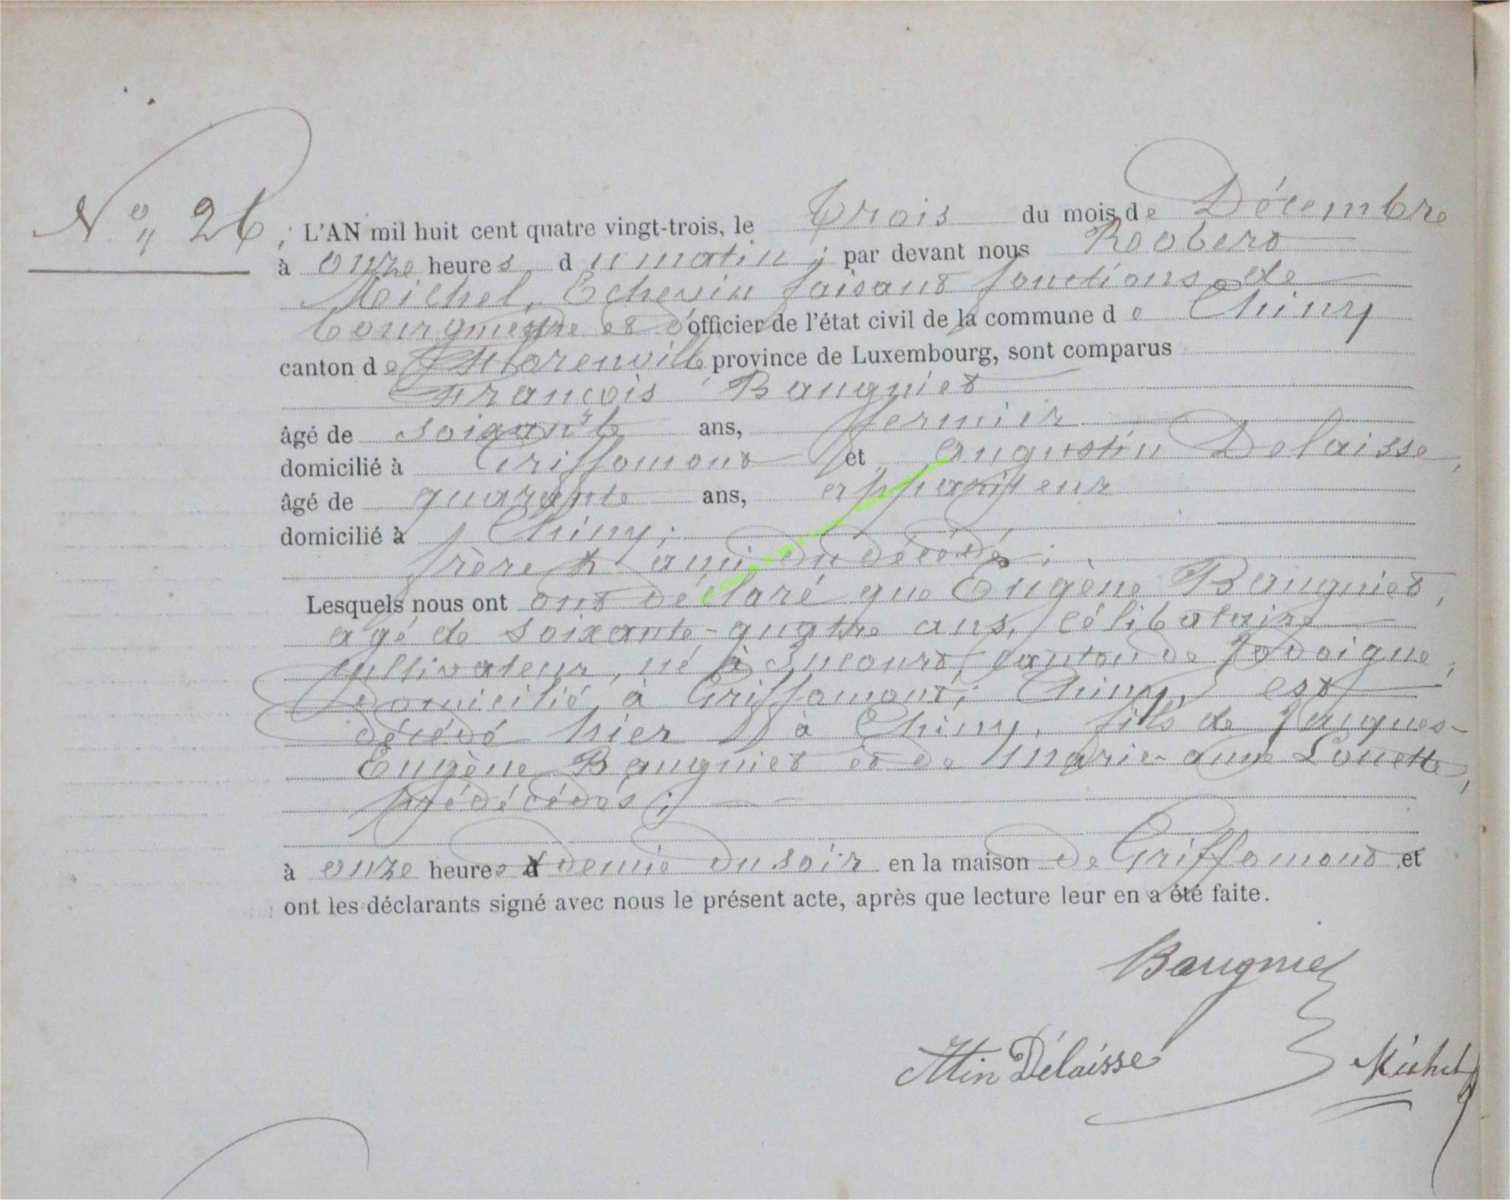 N° 26
L'AN mil huit cent quatre vingt-trois, le trois du mois de Décembre
à onze heures du matin ; par devant nous Roobert
Michel, Echevin faisant fonctions de
bourgmestre et d'officier de l'état civil de la commune de Chiny
canton de Florenville province de Luxembourg, sont comparus
François Baugniet
âgé de soixante ans, fermier
domicilié à Griffomont et Augustin Delaisse,
âgé de quarante ans, appariteur
domicilié à Chiny ;
frère & ami du décédé ;
Lesquels nous ont ont déclaré que Eugène Baugniet,
âgé de soixante-quatre ans, célibataire
cultivateur, né à canton de Jodoigne,
domicilié à Griffomont, Chiny, est
décédé hier à Chiny, fils de Jacques-
Eugène Baugniet et de Marie-anne Louette,
prédécédés ;
à onze heures & demie du soir en la maison de Griffomont et
ont les déclarants signé avec nous le présent acte, après que lecture leur en a été faite.
Baugniet
Atin Délaisse
Michel